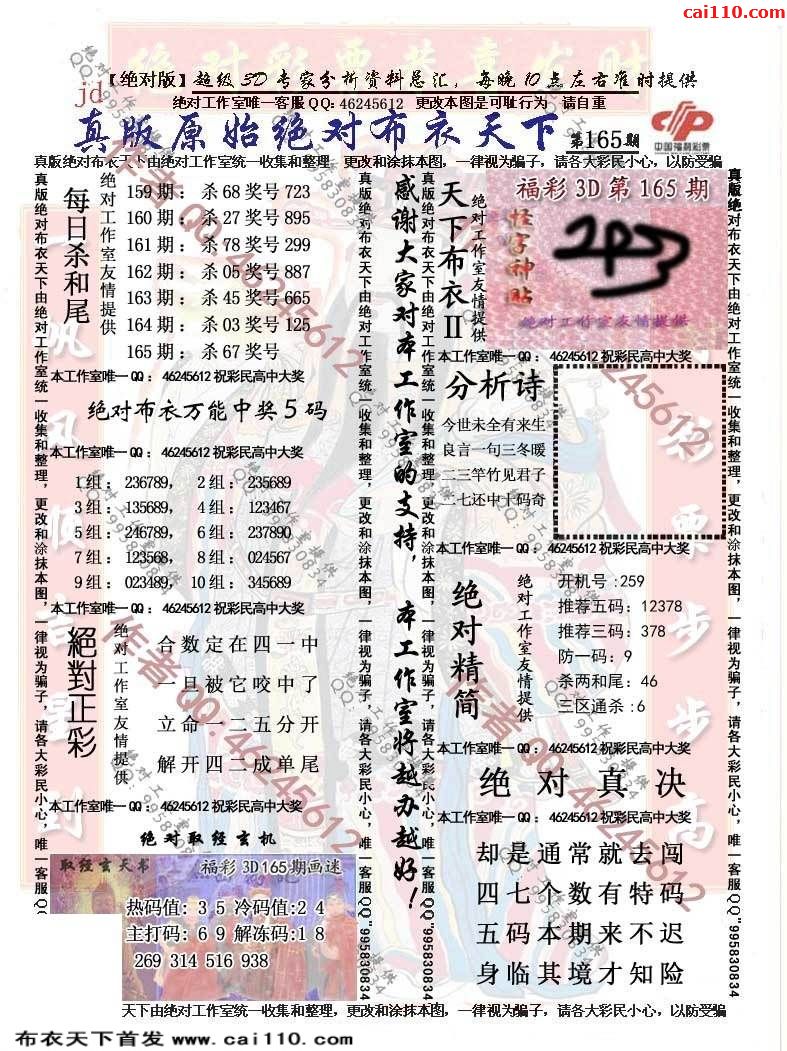 cai110.com
【绝对版】超级3D专家分析资料总汇，每晚10点左右准时提供
jd
绝对工作室唯一客服QQ：46245612 更改本图是可耻行为 请自重
真版原始绝对布衣天下 第165期
中国福利彩票
真版绝对布衣天下由绝对工作室统一收集和整理，更改和涂抹本图，一律视为骗子，请各大彩民小心，以防受骗
真版绝对布衣天下由绝对工作室统一收集和整理，更改和涂抹本图，一律视为骗子，请各大彩民小心，唯一客服QQ
每日杀和尾
绝对工作室友情提供
159期：杀68奖号723
160期：杀27奖号895
161期：杀78奖号299
162期：杀05奖号887
163期：杀45奖号665
164期：杀03奖号125
165期：杀67奖号
本工作室唯一QQ：46245612祝彩民高中大奖
绝对布衣万能中奖5码
本工作室唯一QQ：46245612祝彩民高中大奖
1组：236789， 2组：235689
3组：135689， 4组：123467
5组：246789， 6组：237890
7组：123568， 8组：024567
9组：023489， 10组：345689
本工作室唯一QQ：46245612祝彩民高中大奖
絕對正彩
绝对工作室友情提供
合数定在四一中
一旦被它咬中了
立命一二五分开
解开四二成单尾
本工作室唯一QQ：46245612祝彩民高中大奖
绝对取经玄机
取经玄天书
福彩3D165期画迷
热码值：35冷码值:24
主打码：69解冻码:18
269 314 516 938
真版绝对布衣天下由绝对工作室统一收集和整理，更改和涂抹本图，一律视为骗子，请各大彩民小心，唯一客服QQ"995830834
感谢大家对本工作室的支持，本工作室将越办越好！
真版绝对布衣天下由绝对工作室统一收集和整理，更改和涂抹本图，一律视为骗子，请各大彩民小心，唯一客服QQ"995830834
天下布衣II
绝对工作室友情提供
福彩3D第165期
怪字神贴
绝对工作室友情提供
本工作室唯一QQ：46245612祝彩民高中大奖
分析诗
今世未全有来生
良言一句三冬暖
二三竿竹见君子
二七还中十码奇
本工作室唯一QQ：46245612祝彩民高中大奖
绝对精简
绝对工作室友情提供
开机号:259
推荐五码:12378
推荐三码:378
防一码:9
杀两和尾:46
三区通杀:6
本工作室唯一QQ：46245612祝彩民高中大奖
绝对真决
本工作室唯一QQ：46245612祝彩民高中大奖
却是通常就去闯
四七个数有特码
五码本期来不迟
身临其境才知险
真版绝对布衣天下由绝对工作室统一收集和整理，更改和涂抹本图，一律视为骗子，请各大彩民小心，唯一客服QQ"995830834
天下由绝对工作室统一收集和整理，更改和涂抹本图，一律视为骗子，请各大彩民小心，以防受骗
布衣天下首发 www.cai110.com
作者QQ:46245612
绝对工作室提供
QQ:995830834